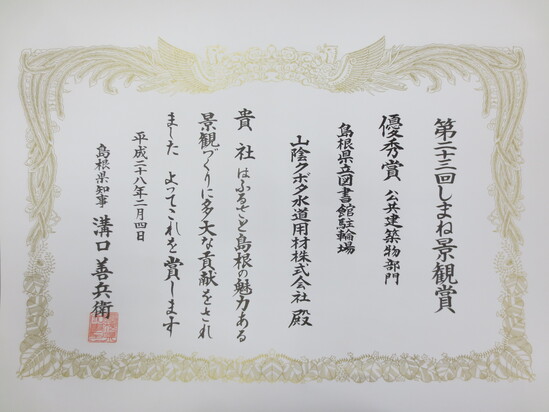 第二十三回しまね景観賞
優秀賞 公共建築物部門
島根県立図書館駐輪場
山陰クボタ水道用材株式会社 殿
貴社はふるさと島根の魅力ある
景観づくりに多大な貢献をされ
ました よってこれを賞します
平成二十八年二月四日
島根県知事 溝口善兵衛